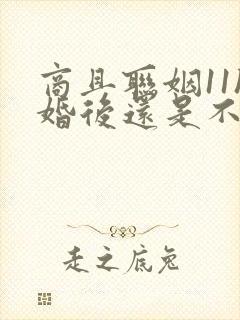 商且聯姻11
婚後還是不
走之底兔